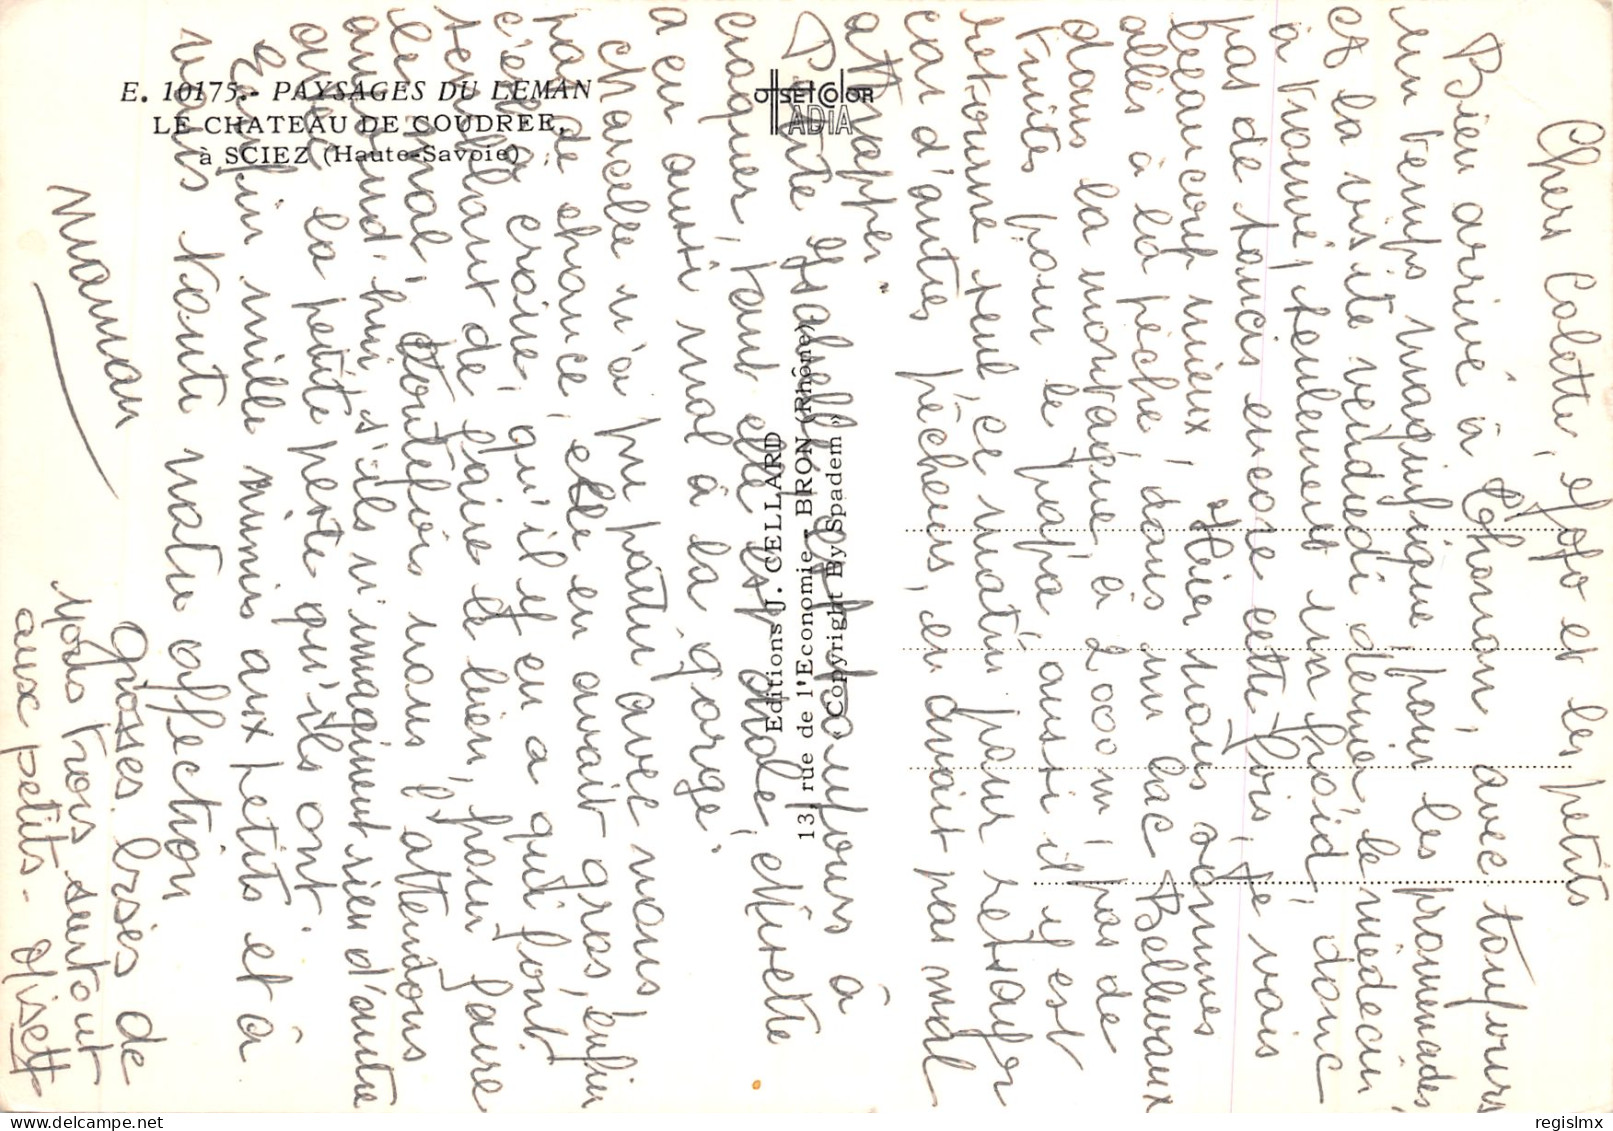 E. 10175.- PAYSAGES DU LEMAN
LE CHATEAU DE COUDREE,
à SCIEZ (Haute-Savoie)
OFFSET COLOR
ADIA
Editions J. CELLARD
13, rue de l'Economie - BRON (Rhône)
« Copyright By Spadem »
Chers Colette, Jojo et les petits
Bien arrivé à Thonon, avec toujours
un temps magnifique pour les promenades,
et la visite vendredi dernier, le médecin
a trouvé seulement un froid, donc
pas de soucis encore cette fois, je vais
beaucoup mieux. Hier nous sommes
allés à la pêche dans un lac Bellevaux
dans la montagne à 2000m, pas de
truites pour le papa, aussi il y est
retourné seul ce matin pour ressayer
car d'autres pêcheurs, en avait pas mal
attraper.
Petite Isabelle est toujours à
croquer, tant elle est drôle, Mirette
a eu aussi mal à la gorge.
chancelle n'a pu partir avec nous,
pas de chance, elle en avait gros, enfin
c'est à croire, qu'il y en a qui font
semblant de faire le bien, pour faire
le mal, toutefois nous l'attendons
aujourd'hui s'ils n'imaginent rien d'autre
avec la petite perte qu'ils ont.
Enfin mille mimis aux petits et à
vous toute notre affection
Grosses bises de
vous trois surtout
aux petits - Miset
maman
regislmx